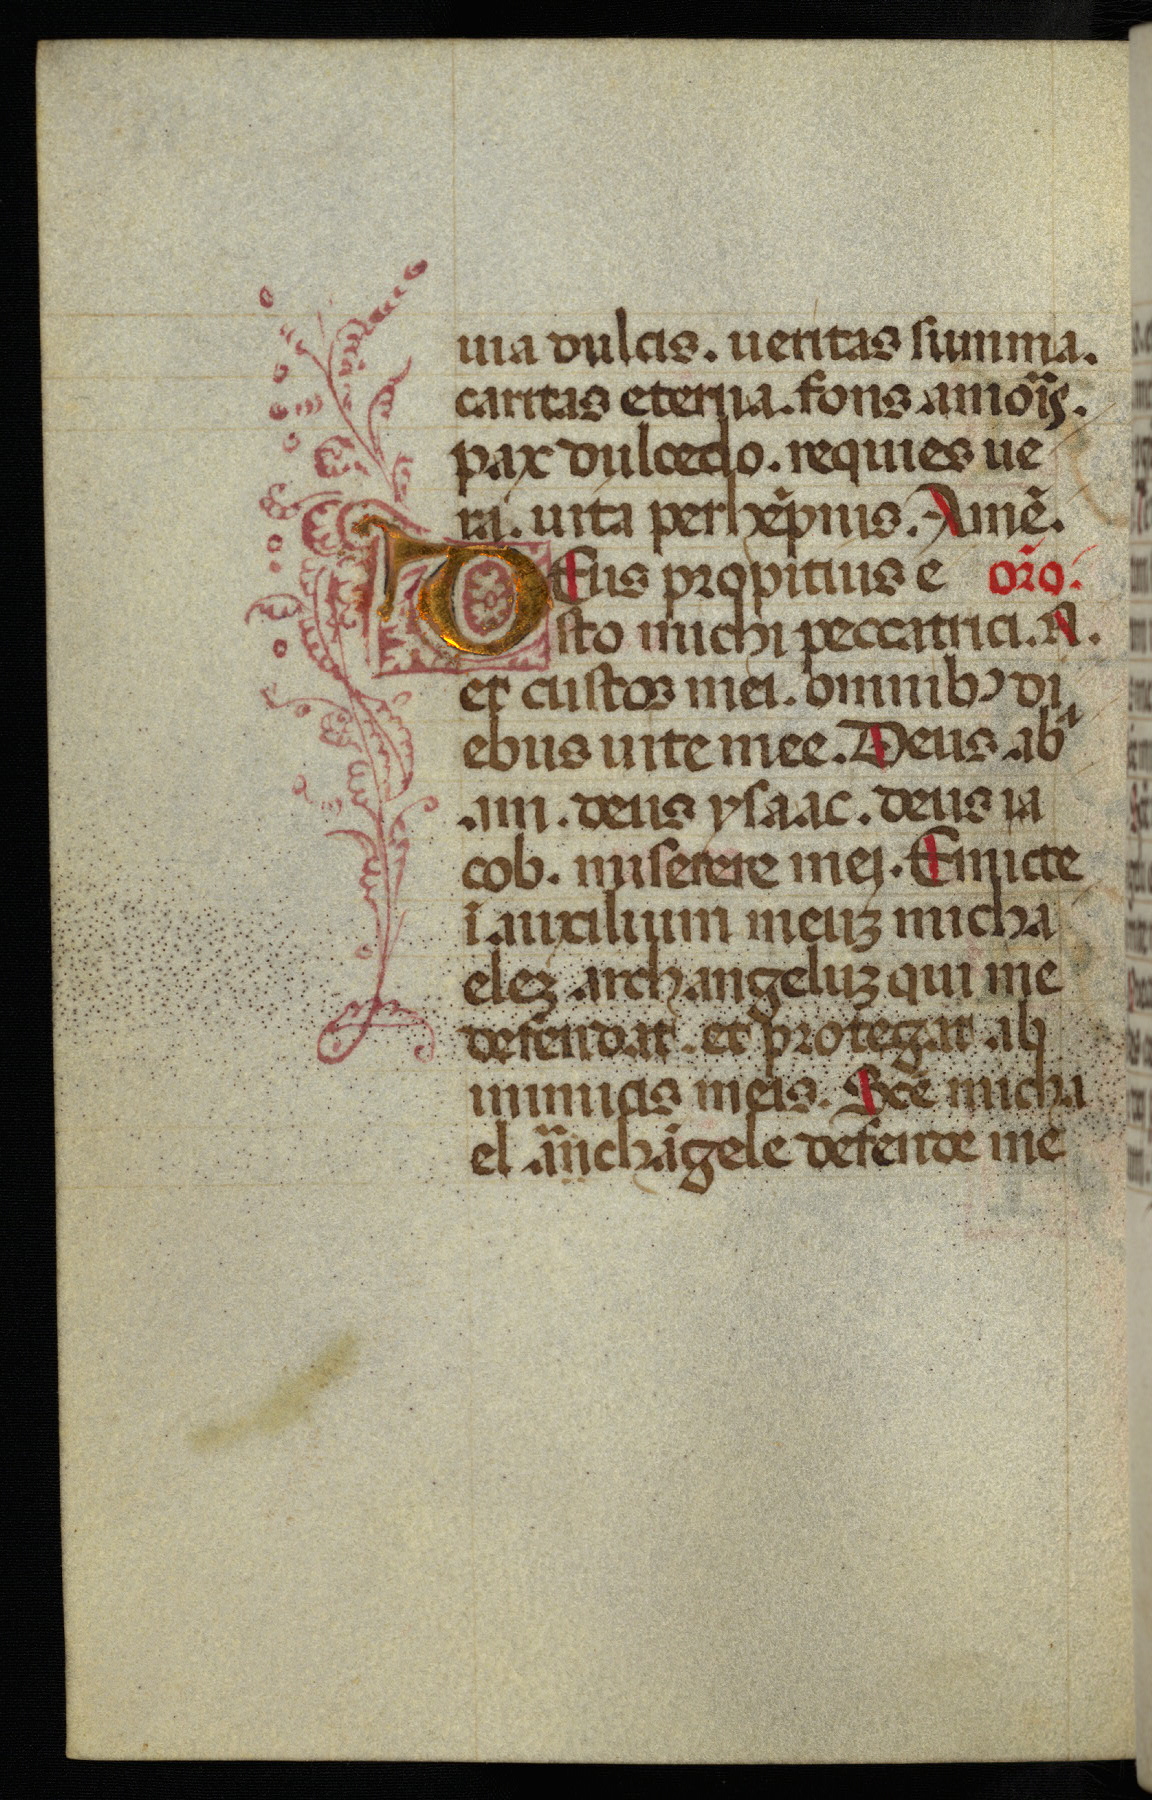 uia dulcis. ueritas summa.
caritas eterna. fons amõis.
pax dulcedo. requies ue
ra. uita perhẽpnis. Amẽ.
DEus propitius e oro̅.
sto michi peccatrici. N.
et custos mei. omnibꝰ di
ebus uite mee. Deus abᵃ
am. deus ysaac. deus ia
cob. miserere mei. Emicte
ĩ auxilium meuz micha
elez archangeluz qui me
defendat. et protegat ab
inimicis meis. Sce̅ micha
el archãgele defende me